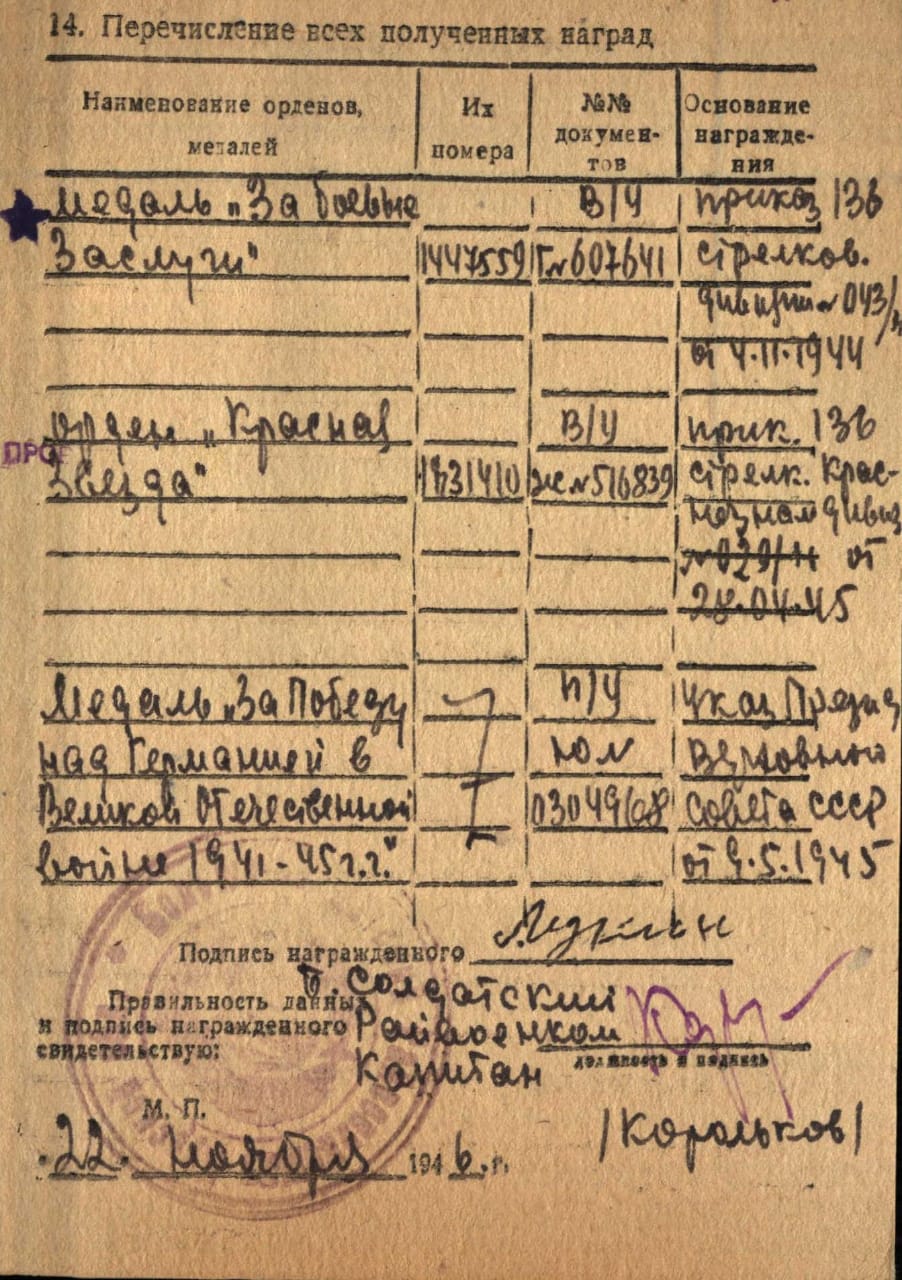 14. Перечисление всех полученных наград
Наименование орденов, Их №№ Основание
медалей номера докумен- награжде-
тов ния
Медаль „За боевые В/У приказ 136
Заслуги" 1447559 Г№607641 стрелков.
дивизии №043/н
от 4.11.1944
Орден „Красная В/У прик. 136
ПРО
Звезда" 1831410 Ж№516839 стрелк. Крас-
нознам дивиз
№029/н от
28.04.45
Медаль „За Победу П/У Указ Презид
над Германией в Ю№ Верховной
Великой Отечественной 03049668 Совета СССР
войне 1941-45г.г." от 9.5.1945
Подпись награжденного
Б. Солдатский
Правильность данных
и подпись награжденного Райвоенком
свидетельствую:
Капитан должность и подпись
М. П.
/Корольков/
22 ноября 1946. г.